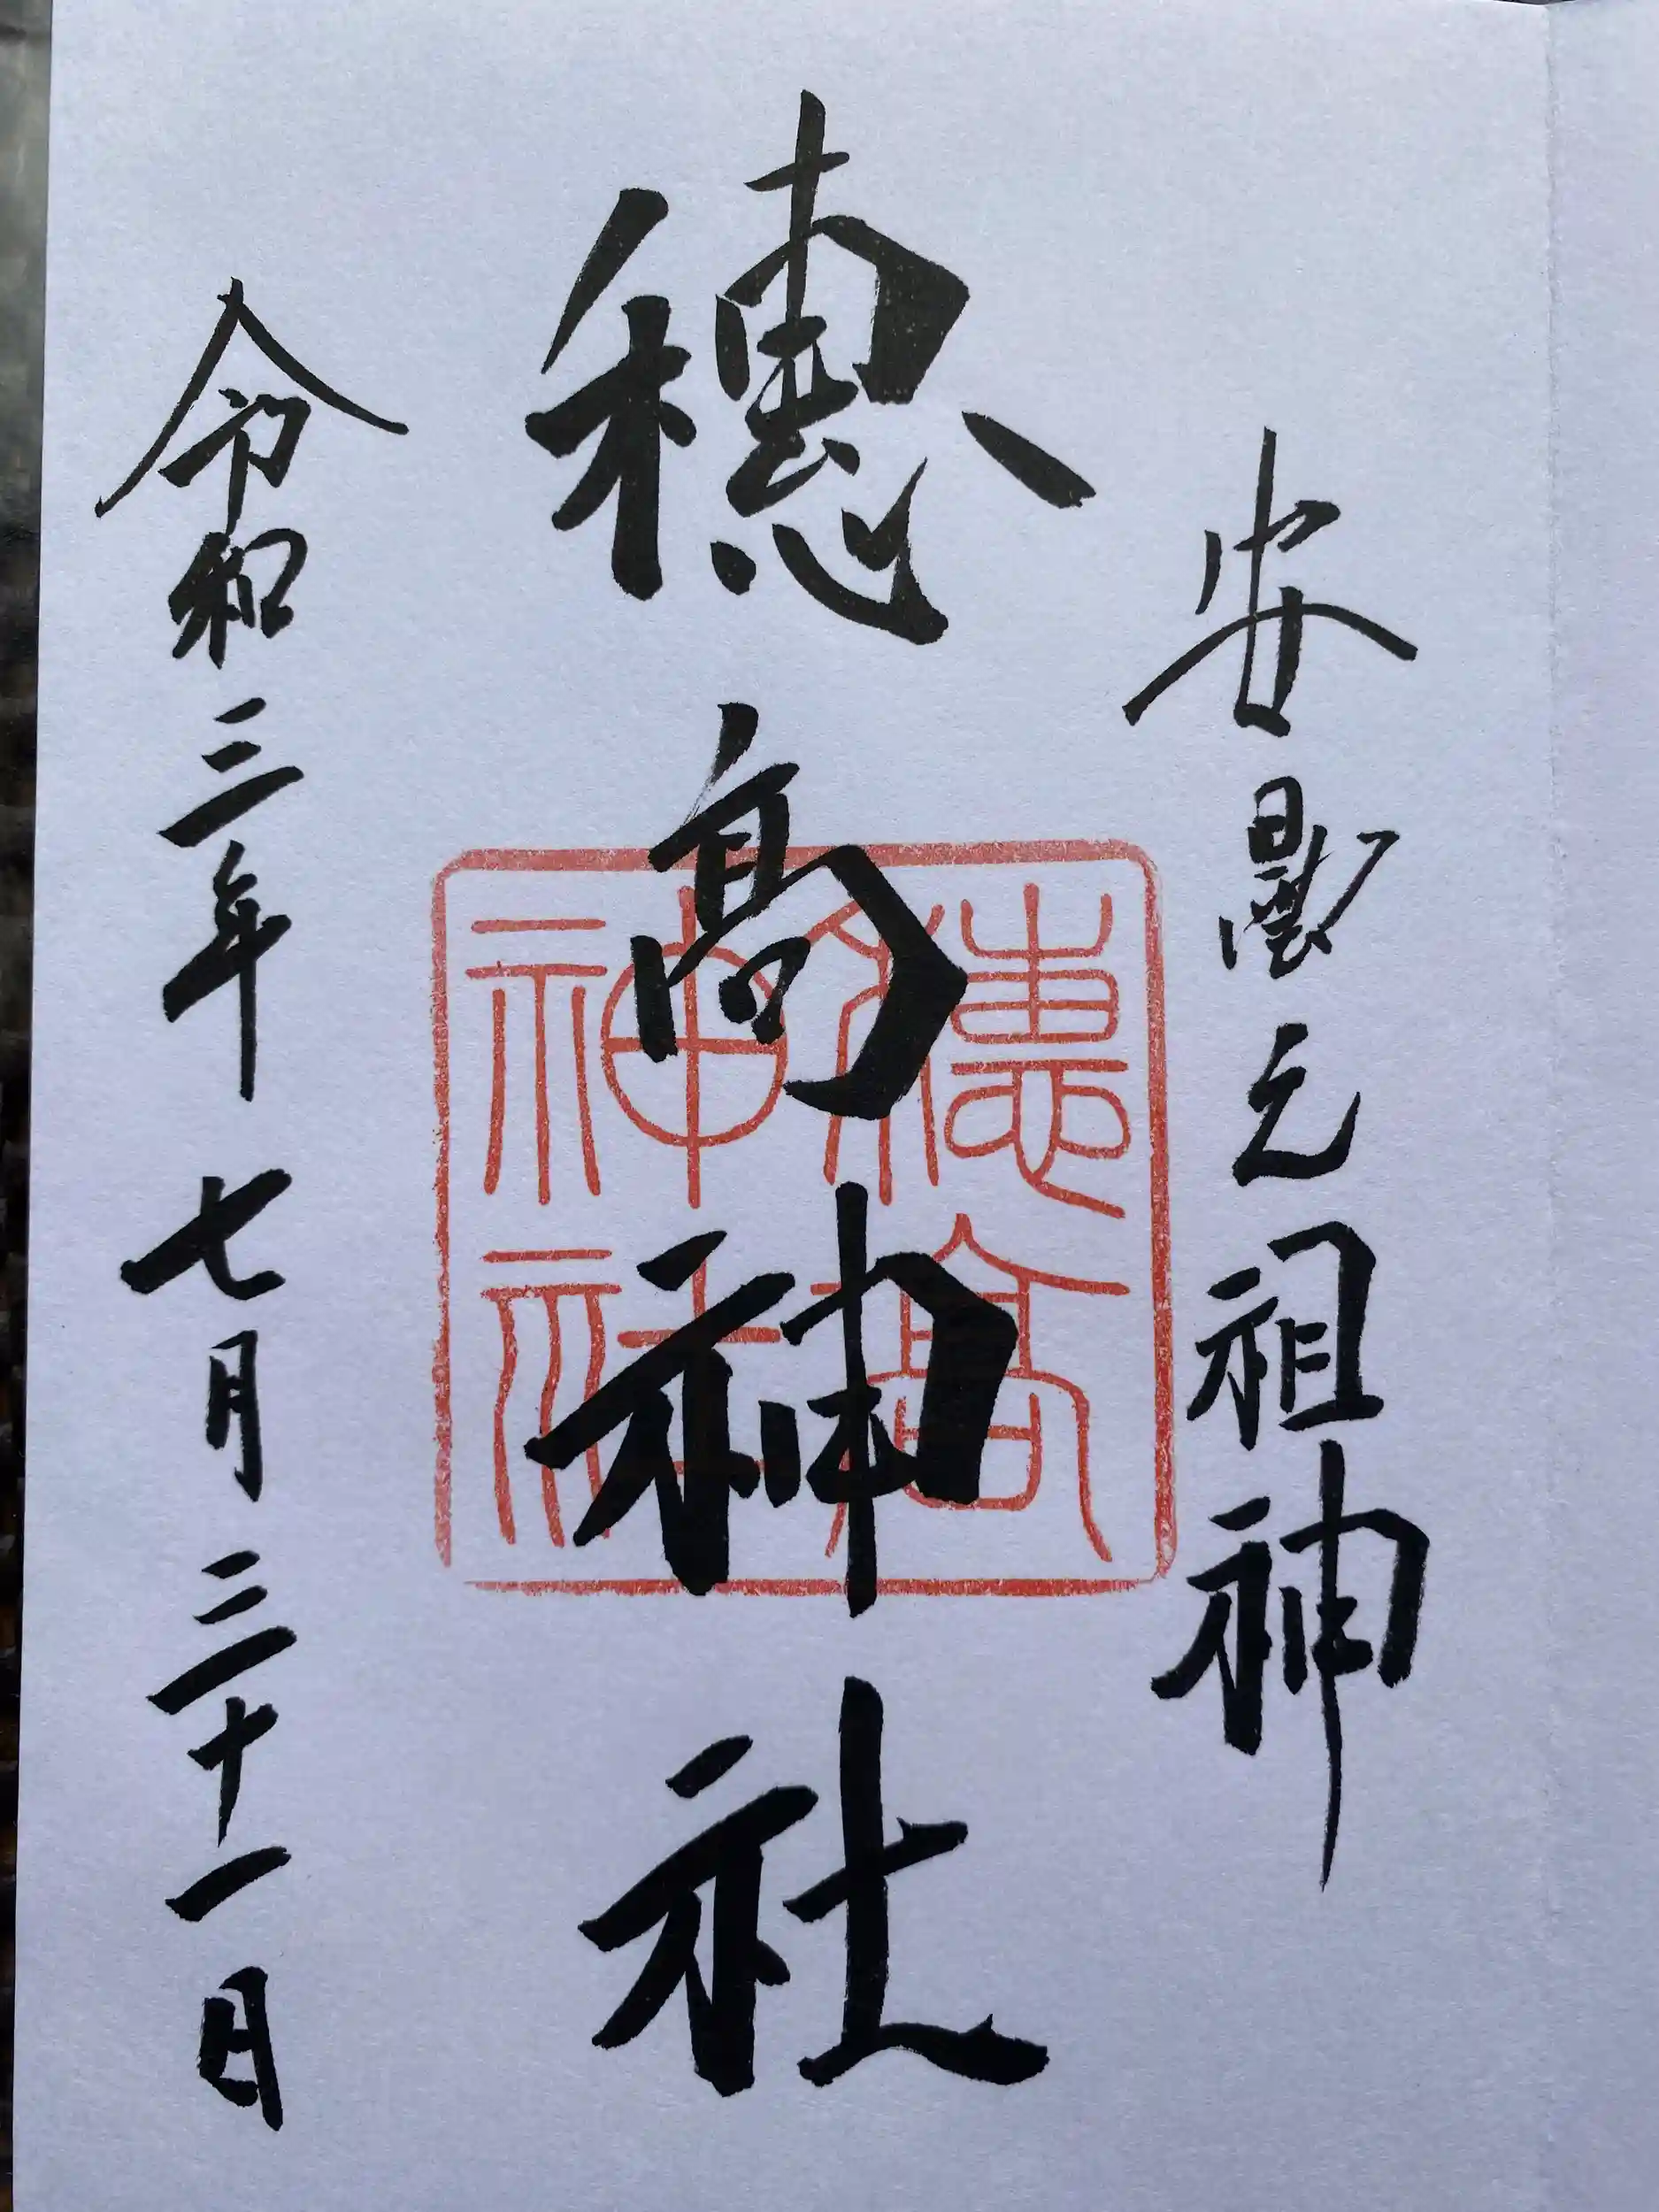 安曇元祖神
穂高神社
穂高
神社
令和三年 七月三十一日